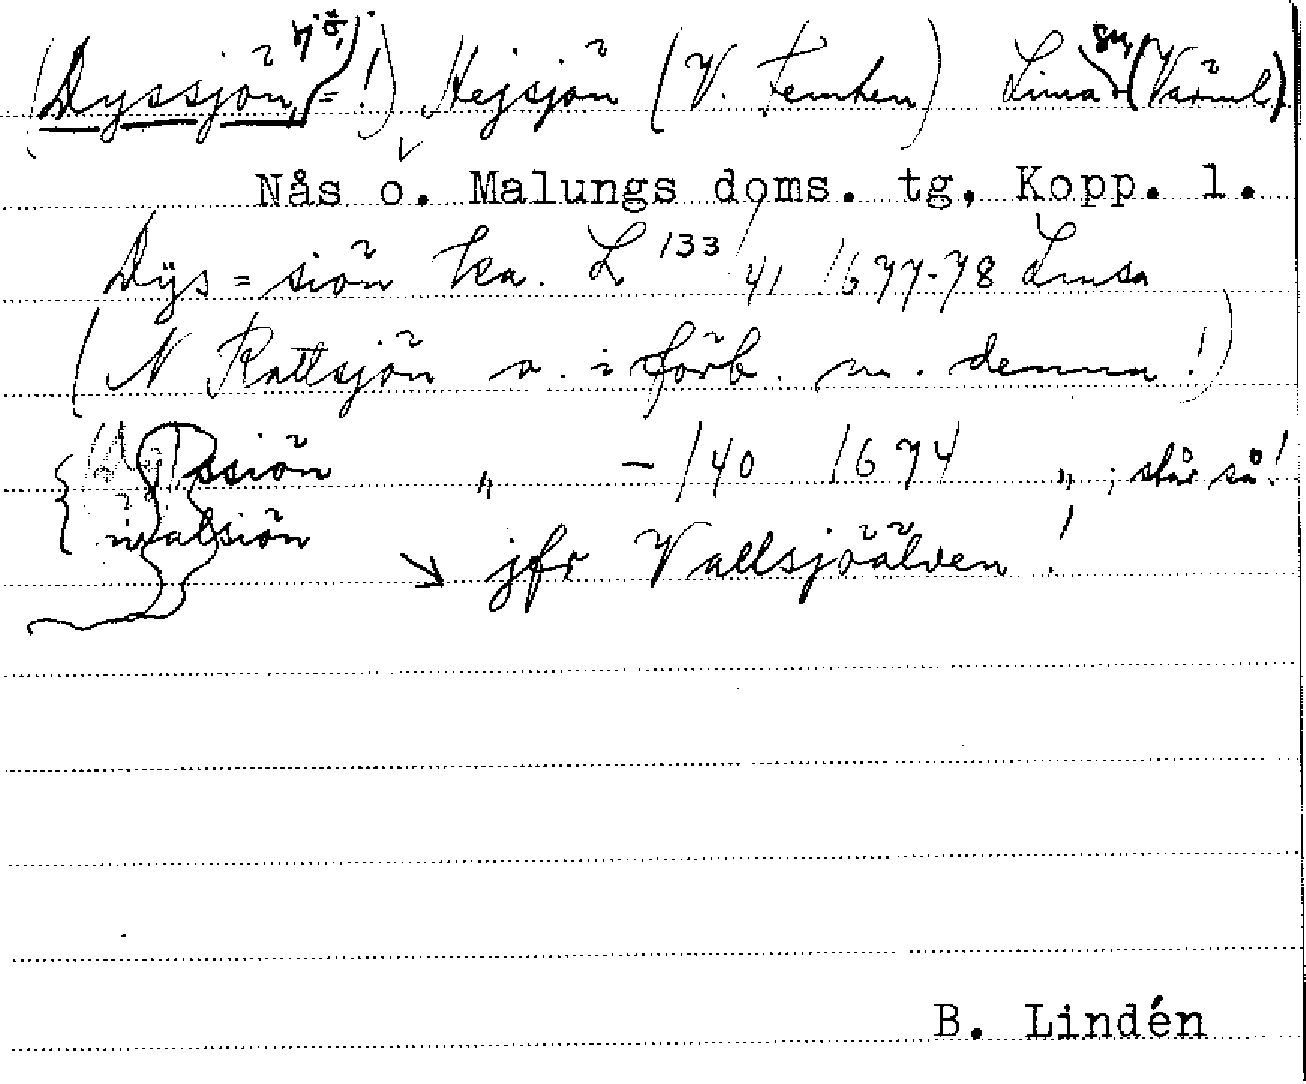 (Dyssjön, = !) Hejsjön (V. Femten) Lima sn (Värml.)
Nås o. Malungs doms. tg, Kopp. l.
Dÿs = siön ka. L 133/41 1677-78 Lima
(N Rattsjön o. i förb. m. denna!)
ssiön „ - /40 1674 „ ; står så!
walsiön
→ jfr Vallsjöälven!
B. Lindén